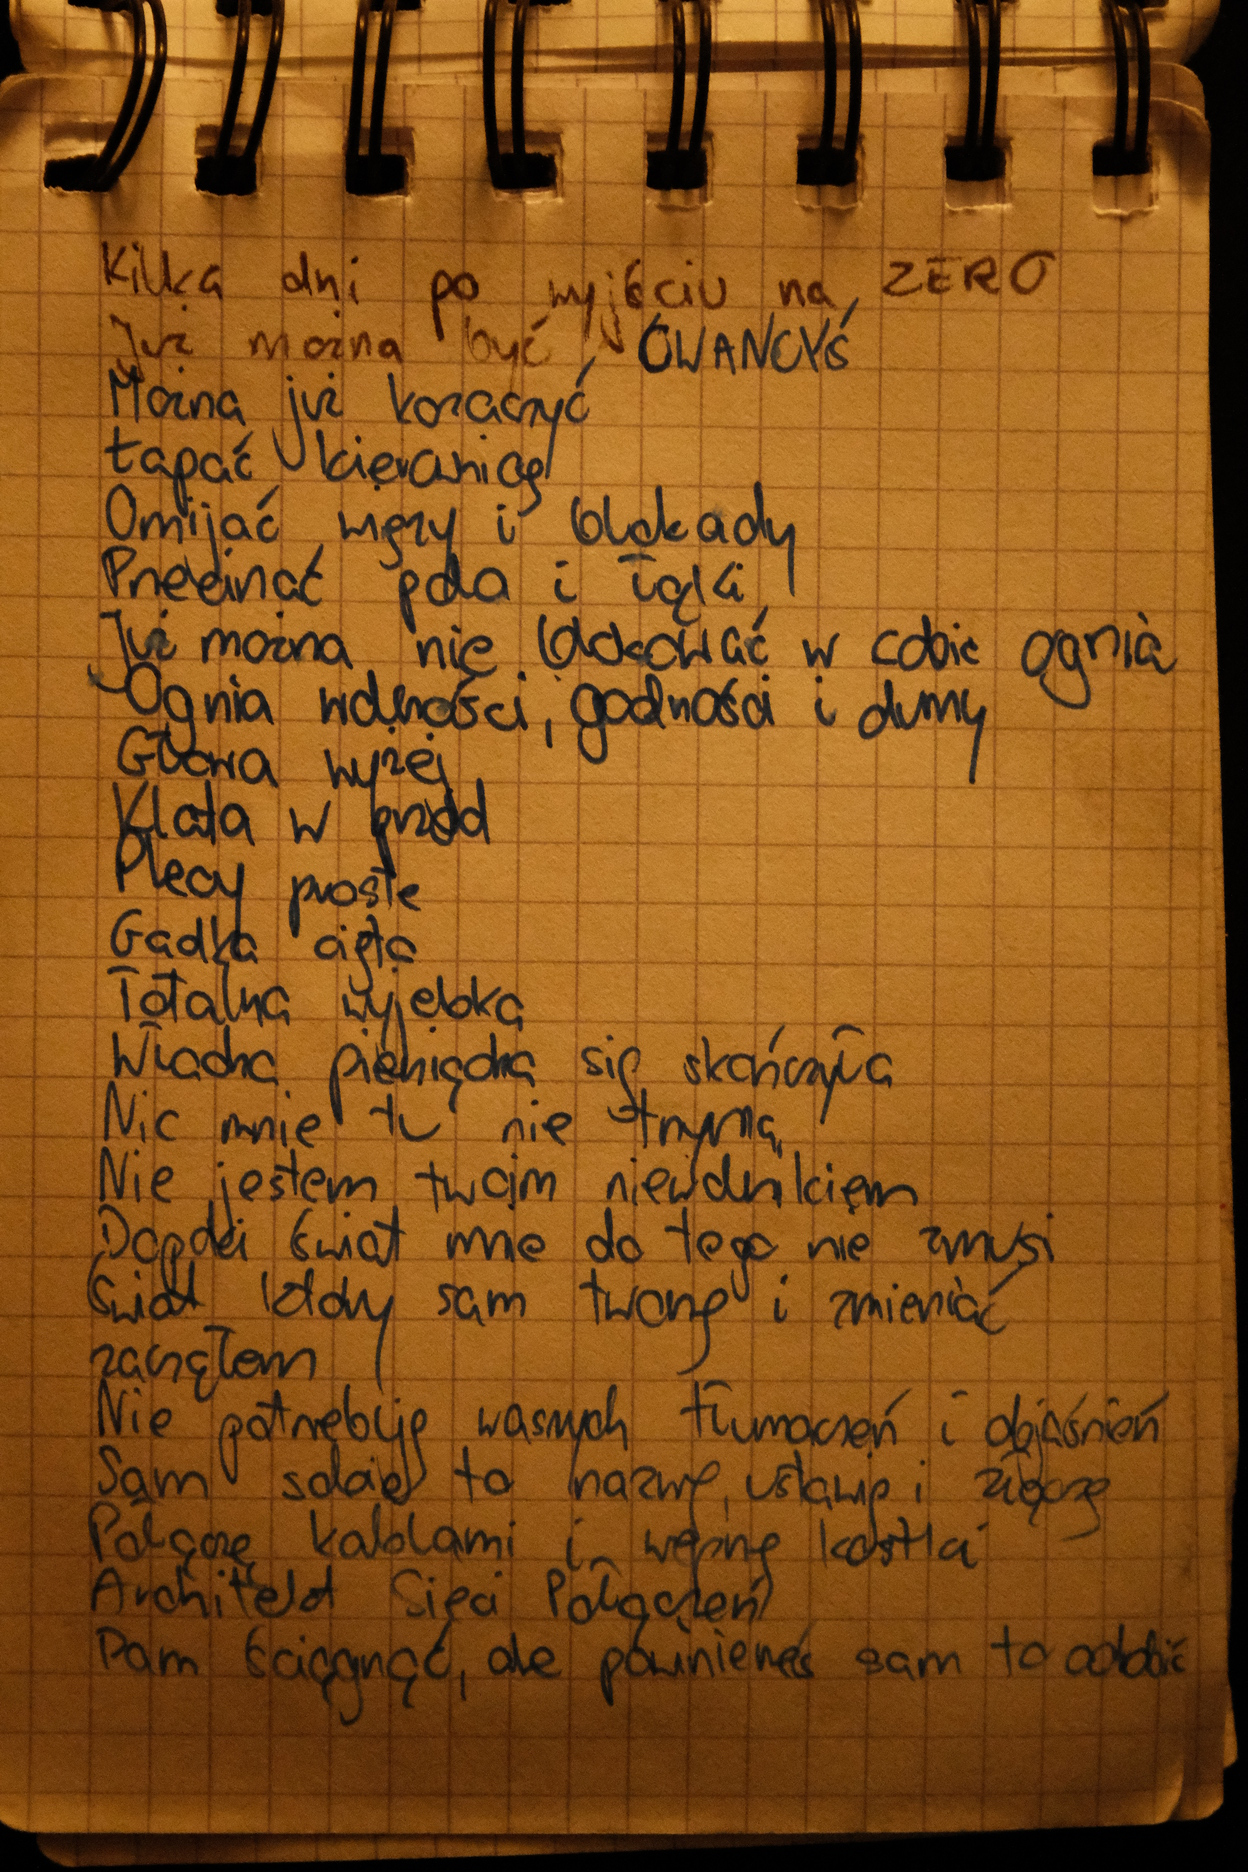 Kilka dni po wyjściu na ZERO
Już można być CWANCYŚ
Można już kozaczyć
Łapać kierownicę
Omijać węzy i blokady
Przecinać pola i łąki
Już można nie blokować w sobie ognia
Ognia wolności, godności i dumy
Głowa wyżej
Klata w przód
Plecy proste
Gadka cięta
Totalna wyjebka
Władza pieniądza się skończyła
Nic mnie tu nie trzyma
Nie jestem twoim niewolnikiem
Dopóki świat mnie do tego nie zmusi
Świat który sam tworzę i zmieniać
zacząłem
Nie potrzebuję waszych tłumaczeń i objaśnień
Sam sobie to nazwę, ustawię i złączę
Połączę kablami i wepnę kostki
Architekt Sieci Połączeń
Dam ściągnąć, ale powinieneś sam to odrobić